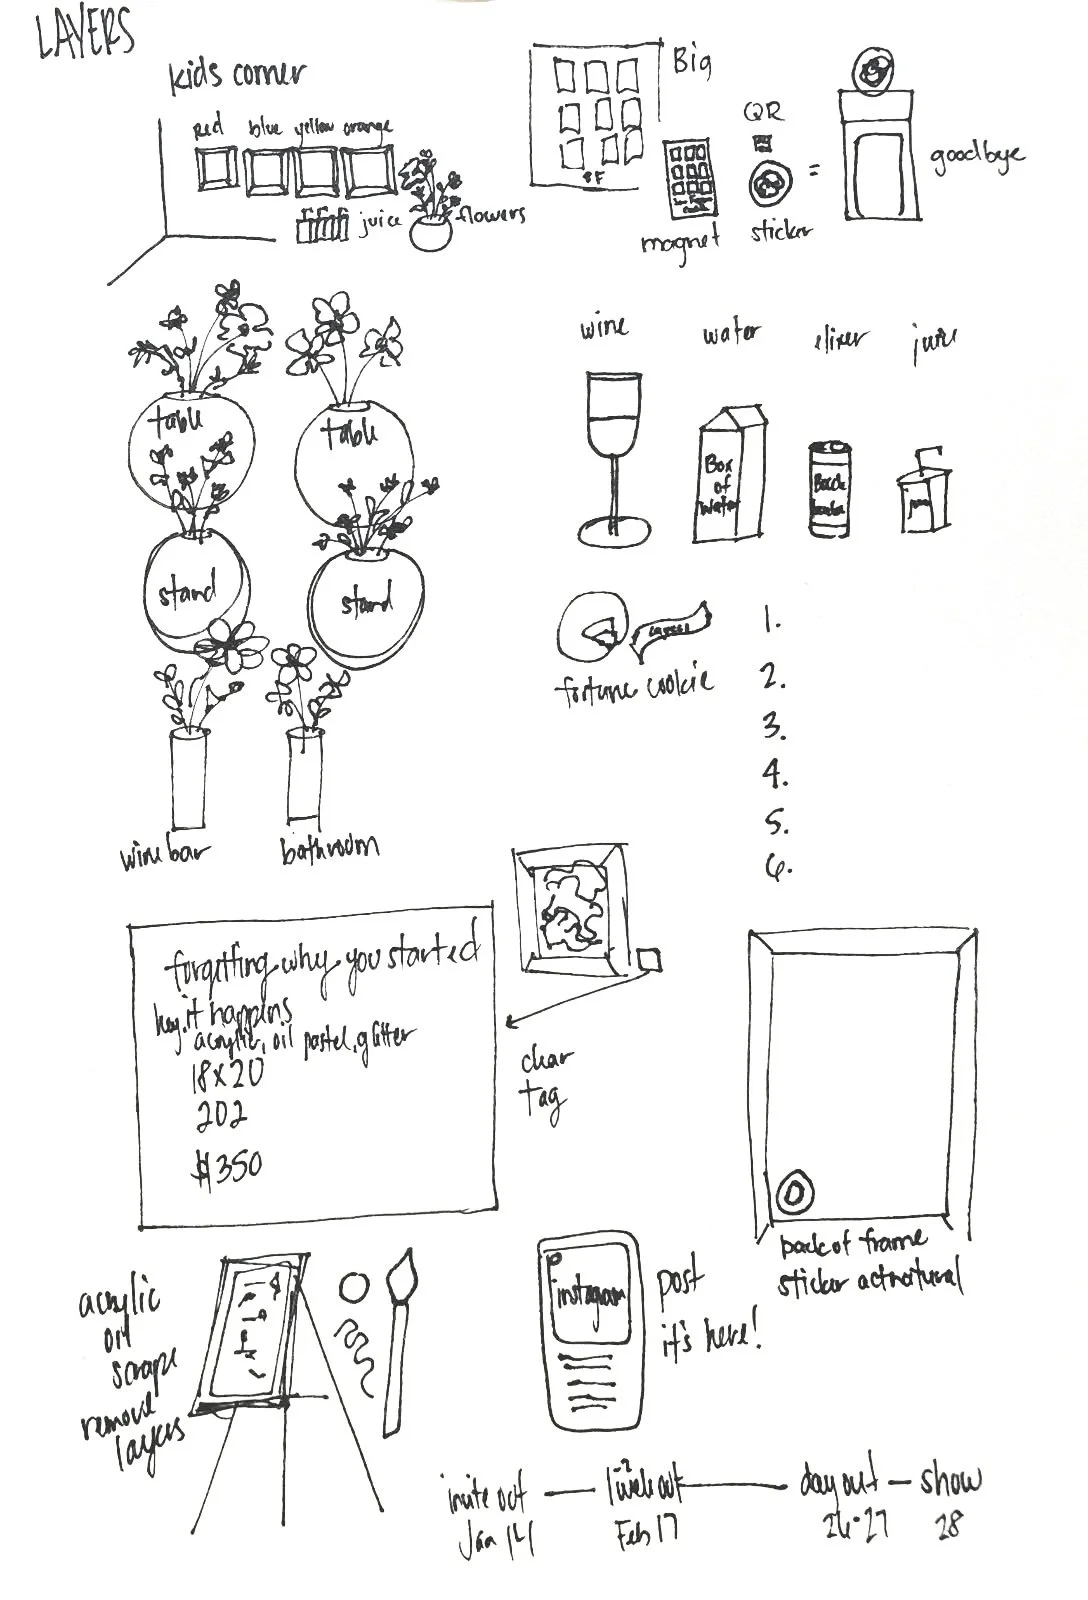 LAYERS
kids corner
red blue yellow orange
juice
flowers
Big
SF
magnet
QR
sticker
=
goodbye
table
table
stand
stand
wine bar
bathroom
wine
water
elixer
juice
Box
of
Water
fortune cookie
1.
2.
3.
4.
5.
6.
forgetting why you started
hey, it happens
acrylic, oil pastel, glitter
18x20
202
$350
clear
tag
back of frame
sticker
acrylic
oil
scrape
remove
layers
instagram
post
it's here!
invite out
Jan 14
week out
Feb 17
day out
26-27
show
28